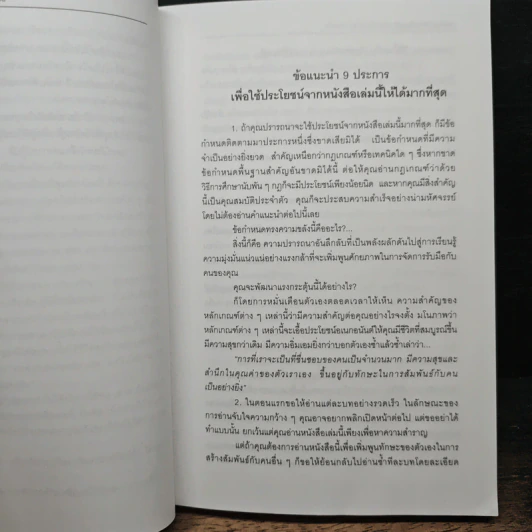 ข้อแนะนำ 9 ประการ
เพื่อใช้ประโยชน์จากหนังสือเล่มนี้ให้ได้มากที่สุด
1. ถ้าคุณปรารถนาจะใช้ประโยชน์จากหนังสือเล่มนี้มากที่สุด ก็มีข้อ
กำหนดติดตามมาประการหนึ่งซึ่งขาดเสียมิได้ เป็นข้อกำหนดที่มีความ
จำเป็นอย่างยิ่งยวด สำคัญเหนือกว่ากฎเกณฑ์หรือเทคนิคใด ๆ ซึ่งหากขาด
ข้อกำหนดพื้นฐานสำคัญอันขาดมิได้นี้ ต่อให้คุณอ่านกฎเกณฑ์ว่าด้วย
วิธีการศึกษานับพัน ๆ กฎก็จะมีประโยชน์เพียงน้อยนิด และหากคุณมีสิ่งสำคัญ
นี้เป็นคุณสมบัติประจำตัว คุณก็จะประสบความสำเร็จอย่างน่ามหัศจรรย์
โดยไม่ต้องอ่านคำแนะนำต่อไปนี้เลย
ข้อกำหนดทรงความขลังนี้คืออะไร?...
สิ่งนี้ก็คือ ความปรารถนาอันลึกลับที่เป็นพลังผลักดันไปสู่การเรียนรู้
ความมุ่งมั่นแน่วแน่อย่างแรงกล้าที่จะเพิ่มพูนศักยภาพในการจัดการรับมือกับ
คนของคุณ
คุณจะพัฒนาแรงกระตุ้นนี้ได้อย่างไร?
ก็โดยการหมั่นเตือนตัวเองตลอดเวลาให้เห็น ความสำคัญของ
หลักเกณฑ์ต่าง ๆ เหล่านี้ว่ามีความสำคัญต่อคุณอย่างไรจงตั้ง มโนภาพว่า
หลักเกณฑ์ต่าง ๆ เหล่านี้จะเอื้อประโยชน์อเนกอนันต์ให้คุณมีชีวิตที่สมบูรณ์ขึ้น
มีความสุขกว่าเดิม มีความอิ่มเอมยิ่งกว่าบอกตัวเองซ้ำแล้วซ้ำเล่าว่า...
"การที่เราจะเป็นที่ชื่นชอบของคนเป็นจำนวนมาก มีความสุขและ
สำนึกในคุณค่าของตัวเราเอง ขึ้นอยู่กับทักษะในการสัมพันธ์กับคน
เป็นอย่างยิ่ง"
2. ในตอนแรกขอให้อ่านแต่ละบทอย่างรวดเร็ว ในลักษณะของ
การอ่านจับใจความกว้าง ๆ คุณอาจอยากพลิกเปิดหน้าต่อไป แต่ขออย่าได้
ทำแบบนั้น ยกเว้นแต่คุณอ่านหนังสือเล่มนี้เพียงเพื่อหาความสำราญ
แต่ถ้าคุณต้องการอ่านหนังสือนี้เพื่อเพิ่มพูนทักษะของตัวเองในการ
สร้างสัมพันธ์กับคนอื่น ๆ ก็ขอให้ย้อนกลับไปอ่านซ้ำทีละบทโดยละเอียด